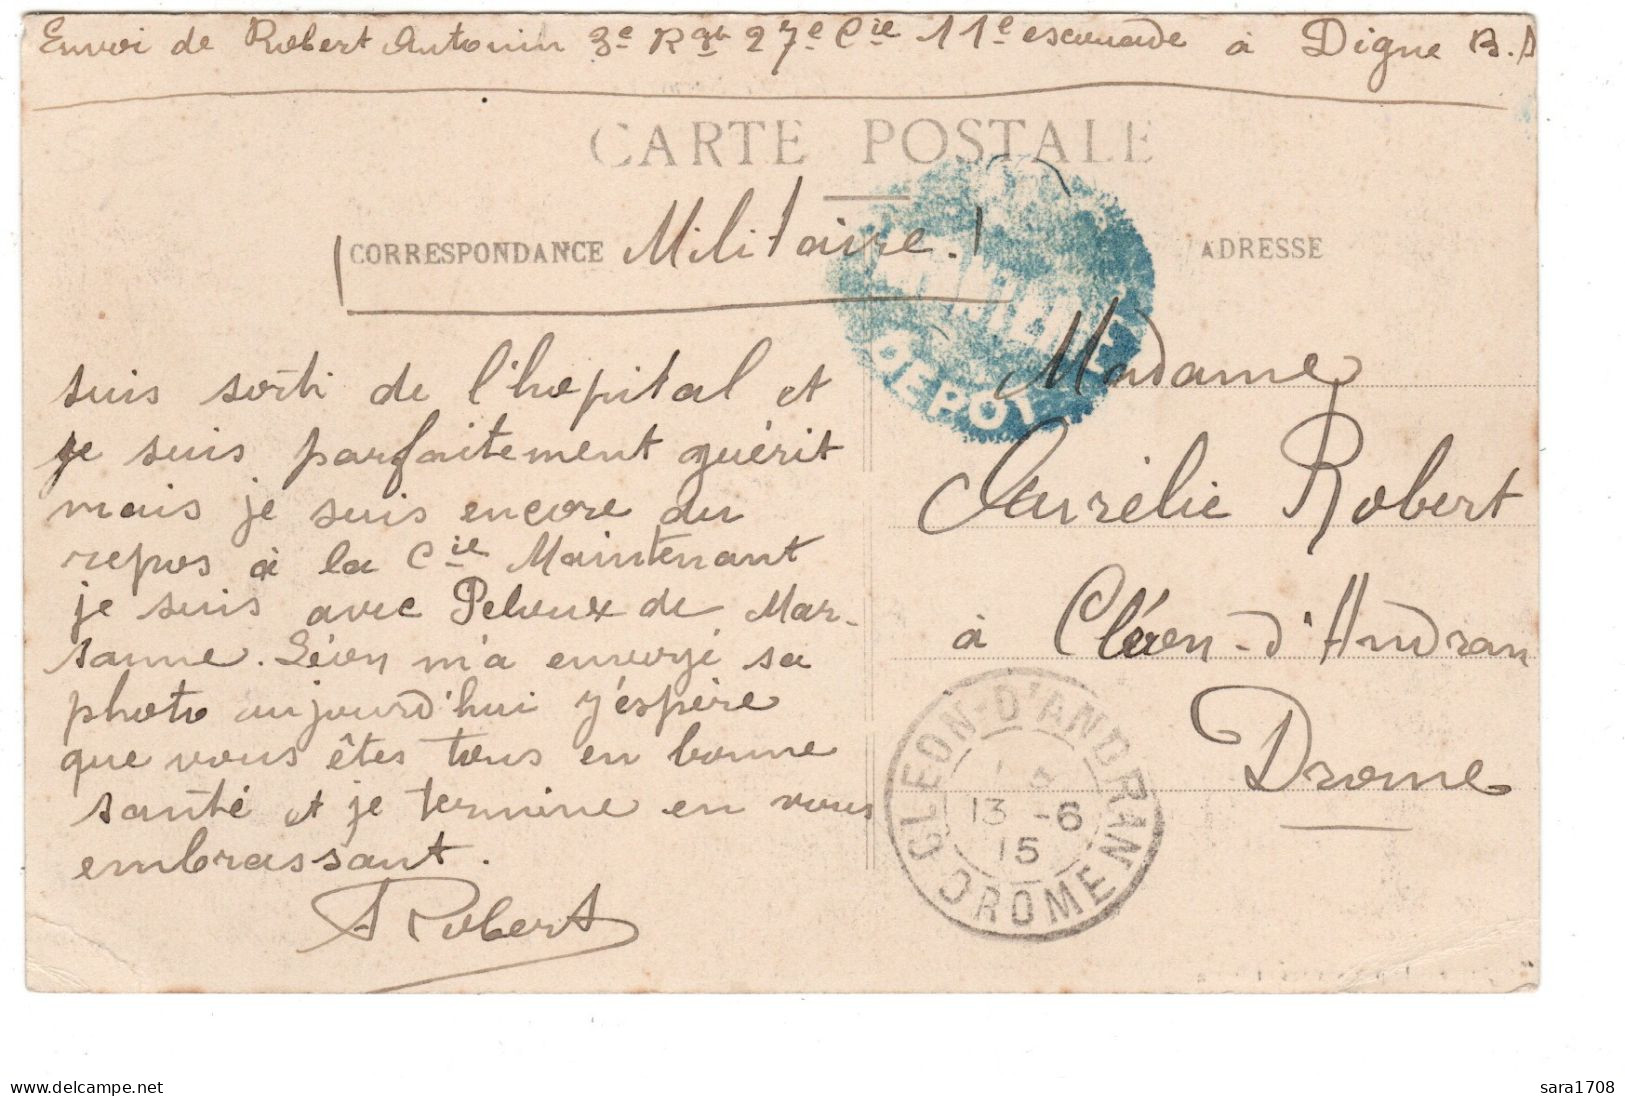 Envoi de Robert Antonin 3e Rgt 27e Cie 11e escouade à Digne B.A
CARTE POSTALE
CORRESPONDANCE Militaire.
ADRESSE
DEPOT
suis sorti de l'hopital et
je suis parfaitement guérit
mais je suis encore du
repos à la Cie Maintenant
je suis avec Peloux de Mar-
sanne. Léon m'a envoyé sa
photo aujourd'hui j'espère
que vous êtes tous en bonne
santé et je termine en vous
embrassant.
A Robert
Madame
Aurélie Robert
à Cléon-d'Andran
Drome
CLEON-D'ANDRAN
13 -6
15
DROME
sara1708